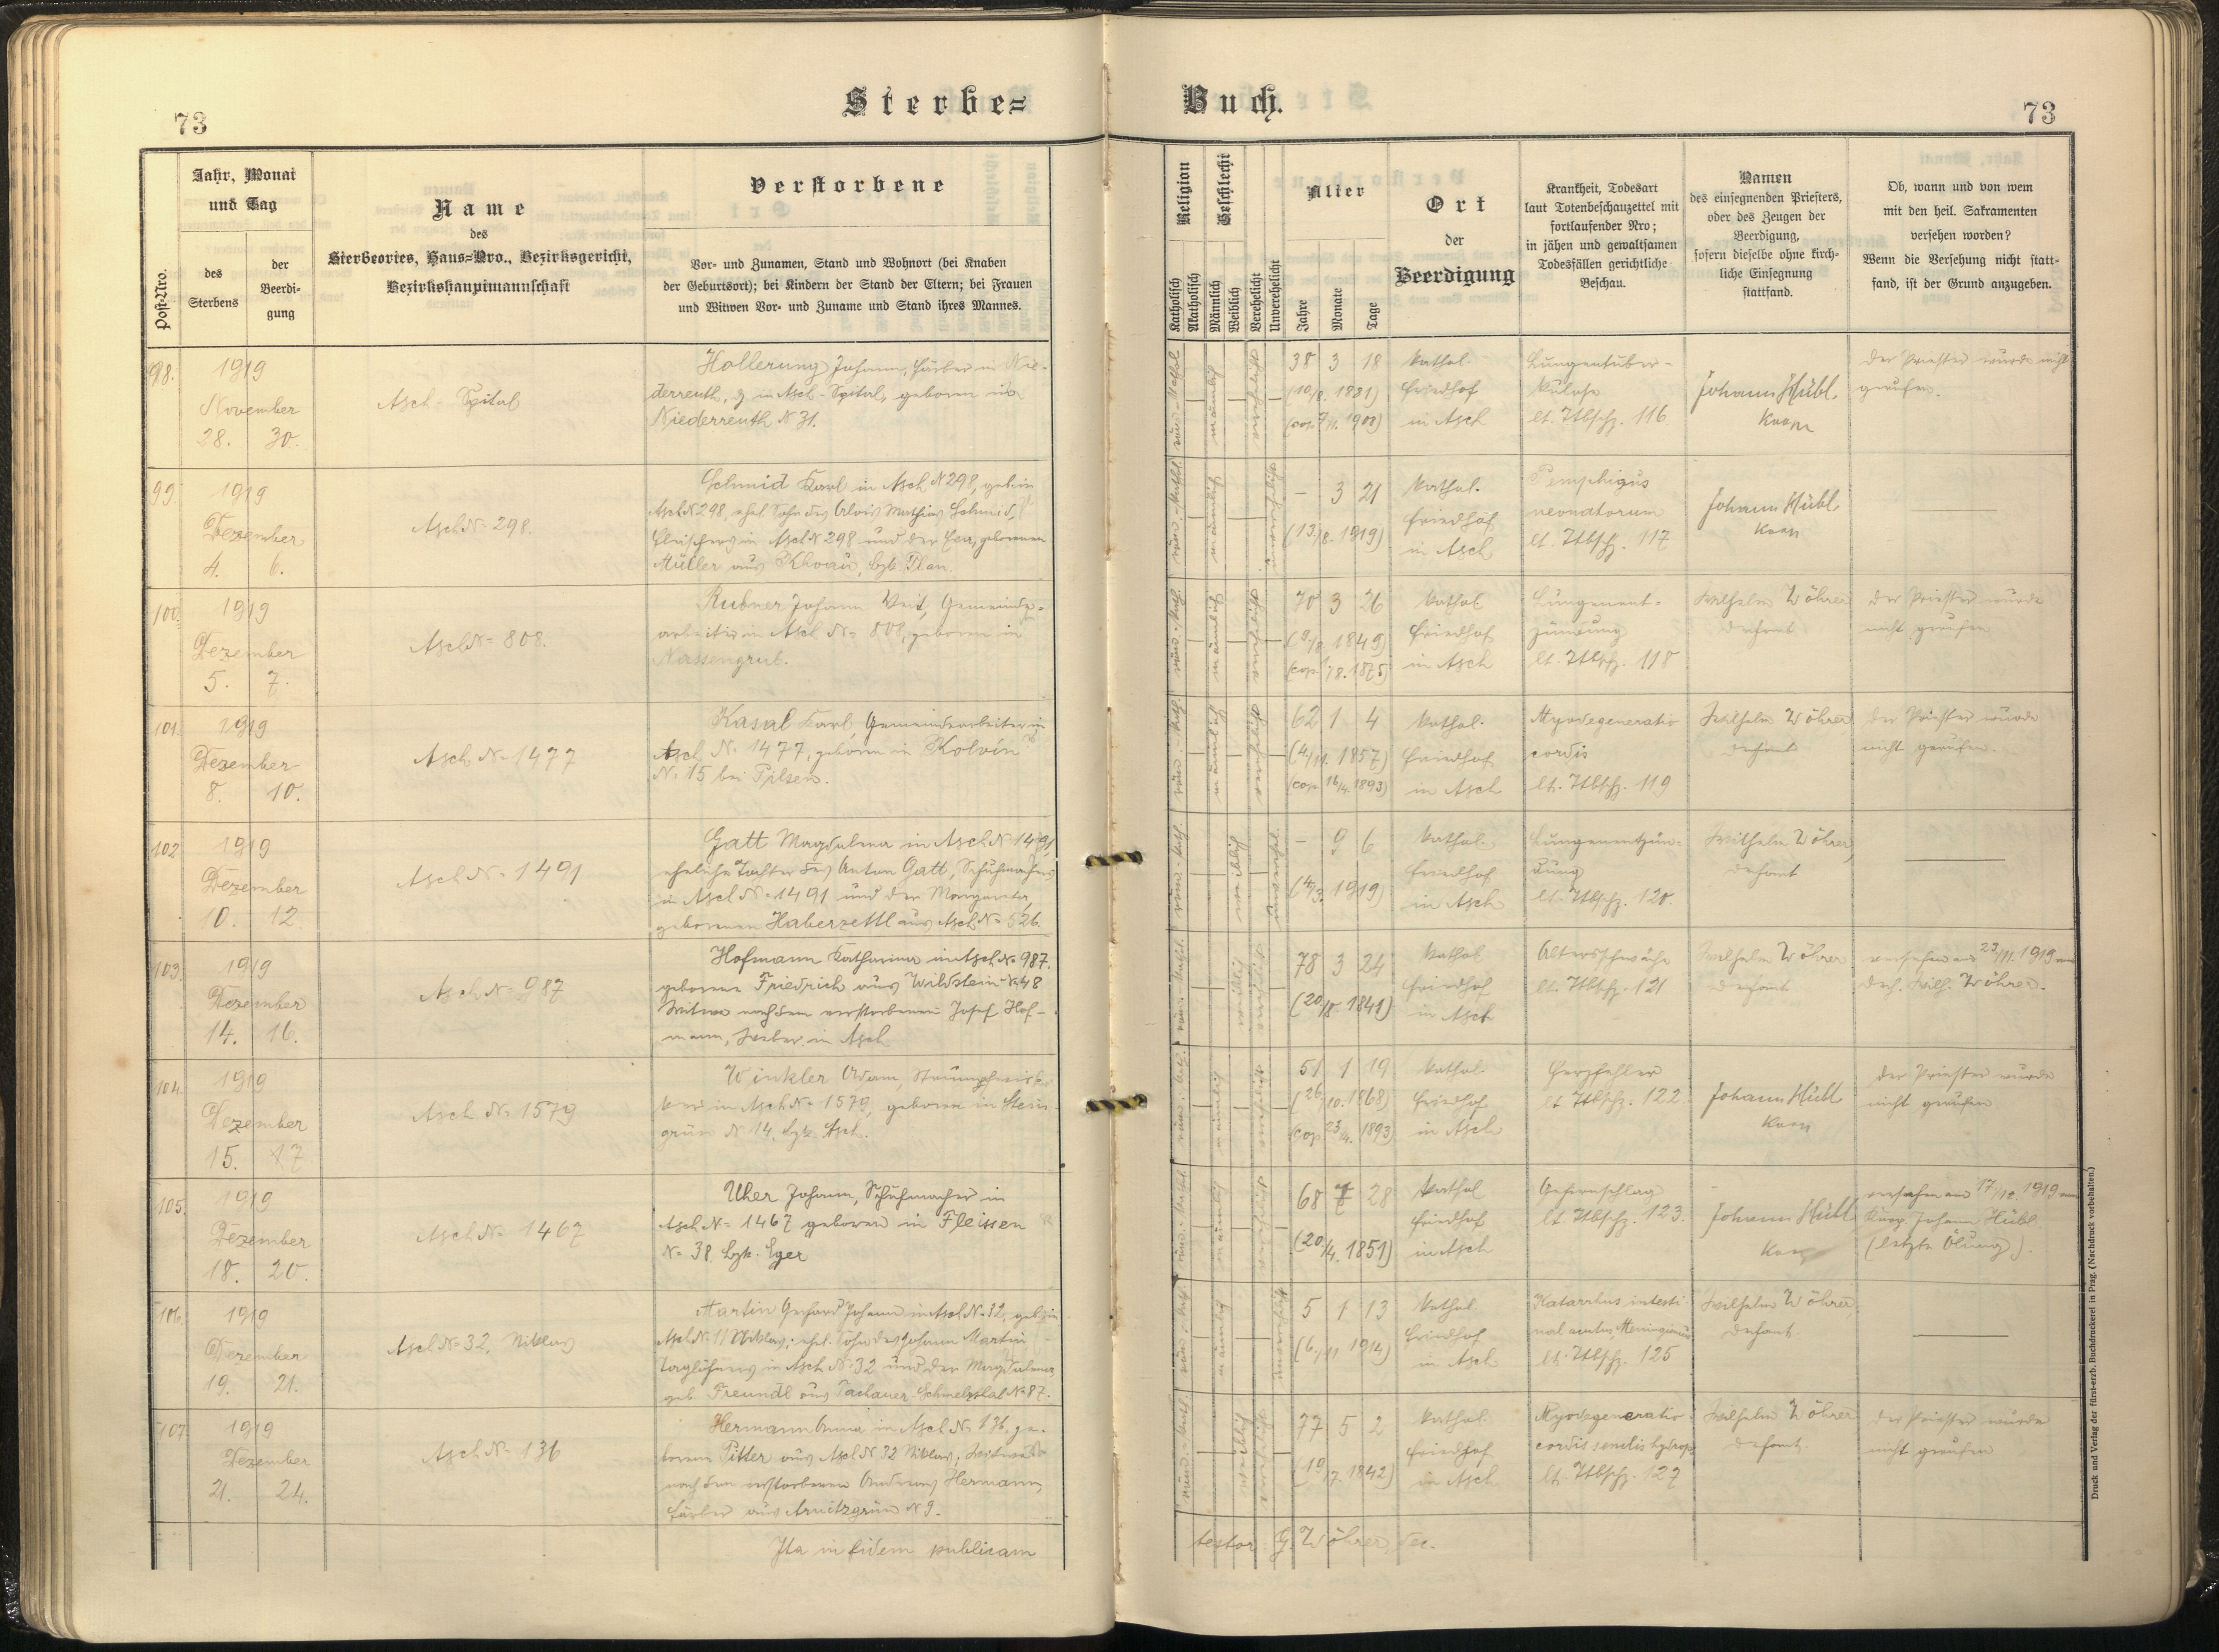 73
Sterbe=
Buch.
73
Post-Nro.
Jahr, Monat
und Tag
des
Sterbens
der
Beerdi-
gung
Name
des
Sterbeortes, Haus=Nro., Bezirksgericht,
Bezirkshauptmannschaft
Verstorbene
Vor- und Zunamen, Stand und Wohnort (bei Knaben
der Geburtsort); bei Kindern der Stand der Eltern; bei Frauen
und Witwen Vor- und Zuname und Stand ihres Mannes.
Religion
Katholisch
Akatholisch
Geschlecht
Männlich
Weiblich
Verehelicht
Unverehelicht
Alter
Jahre
Monate
Tage
Ort
der
Beerdigung
Krankheit, Todesart
laut Totenbeschauzettel mit
fortlaufender Nro;
in jähen und gewaltsamen
Todesfällen gerichtliche
Beschau.
Namen
des einsegnenden Priesters,
oder des Zeugen der
Beerdigung,
sofern dieselbe ohne kirch-
liche Einsegnung
stattfand.
Ob, wann und von wem
mit den heil. Sakramenten
versehen worden?
Wenn die Versehung nicht statt-
fand, ist der Grund anzugeben.
98.
1919
November
28. 30.
Asch - Spital
Hollerung Johann, Färber in Nie-
derreuth, z. in Asch-Spital, geboren in
Niederreuth N 31.
38 3 18
(10/8. 1881)
(cop. 7/11. 1908)
kathol.
Friedhof
in Asch
Lungentuber-
kulose
lt. Ttbschz. 116
Johann Hübl,
Koop
Der Priester wurde nicht
gerufen.
99.
1919
Dezember
4. 6.
Asch N= 298.
Schmid Karl in Asch N 298, geb. in
Asch N 298, ehel. Sohn des Alois Mathias Schmid,
Fleischers in Asch N 298 und der Eva, geborenen
Müller aus Khoau, bzk. Plan.
- 3 21
(13./8. 1919)
kathol.
Friedhof
in Asch
Pemphigus
neonatorum
lt. Ttbschz. 117
Johann Hübl,
Koop
100.
1919
Dezember
5. 7.
Asch N= 808.
Rubner Johann Veit, Gemeinde-
arbeiter in Asch N= 808, geboren in
Nassengrub.
70 3 26
(9/8. 1849)
(cop. 1/8. 1875)
kathol.
Friedhof
in Asch
Lungenent-
zündung
lt. Ttbschz. 118
Wilhelm Wöhrer
Dechant
Der Priester wurde
nicht gerufen
101.
1919
Dezember
8. 10.
Asch N= 1477
Kasal Karl, Gemeindearbeiter in
Asch N. 1477, geboren in Kolvin
N. 15 bei Pilsen.
62 1 4
(4/11. 1857)
(cop. 16/4. 1893)
kathol.
Friedhof
in Asch
Myodegeneratio
cordis
lt. Ttbschz. 119
Wilhelm Wöhrer
Dechant
Der Priester wurde
nicht gerufen.
102
1919
Dezember
10. 12.
Asch N= 1491
Gatt Magdalena in Asch N 1491,
eheliche Tochter des Anton Gatt, Schuhmachers
in Asch N= 1491 und der Margareta,
geborenen Haberzettl aus Asch N= 526.
- 9 6
(4/3. 1919)
kathol.
Friedhof
in Asch
Lungenentzün-
dung
lt. Ttbschz. 120.
Wilhelm Wöhrer,
Dechant
103.
1919
Dezember
14. 16.
Asch N= 987
Hofmann Katharina in Asch N= 987,
geborene Friedrich aus Wildstein N. 48
Witwe nach dem verstorbenen Josef Hof-
mann, Weber in Asch
78 3 24
(20./8. 1841)
kathol
Friedhof
in Asch
Altersschwäche
lt. Ttbschz. 121
Wilhelm Wöhrer
Dechant
versehen am 23/11. 1919 von
Dech. Wilh. Wöhrer.
104.
1919
Dezember
15. 17
Asch N= 1579
Winkler Adam, Strumpfwir-
ker in Asch N= 1579, geboren in Stein-
grün N 14, bzk. Asch.
51 1 19
(26/10. 1868)
(cop. 23/4. 1893)
kathol.
Friedhof
in Asch
Herzfehler
lt Ttbschz. 122.
Johann Hübl
Koop
Der Priester wurde
nicht gerufen
105.
1919
Dezember
18. 20.
Asch N= 1467
Uher Johann, Schuhmacher in
Asch N= 1467 geboren in Fleissen
N= 38 bzk. Eger
68 7 28
(20/4. 1851)
kathol
Friedhof
in Asch
Gehirnschlag
lt. Ttbschz. 123.
Johann Hübl
Koop
versehen am 17/12. 1919 von
Koop. Johann Hübl.
(letzte Ölung).
106.
1919
Dezember
19. 21.
Asch N= 32, Niklas
Martin Gerhard Johann in Asch N= 32, geb. in
Asch N. 11 Niklas; ehel. Sohn des Johann Martin
Taglöhners in Asch N. 32 und der Magdalena,
geb. Freundl aus Tachauer Schmelzthal N. 87.
5 1 13
(6./11 1914)
kathol.
Friedhof
in Asch
Katarrhus intesti
nal acutus,
lt. Ttbschz. 125
Wilhelm Wöhrer,
Dechant
107
1919
Dezember
21. 24.
Asch N= 136
Hermann Anna in Asch N. 136, ge-
borene Pitter aus Asch N 32 Niklas; Witwe
nach dem verstorbenen Andreas Hermann,
Färber aus Arnitzgrün N 9.
77 5 2
(19/7. 1842)
kathol.
Friedhof
in Asch
Myodegeneratio
cordis senilis hydrops
lt. Ttbschz. 127
Wilhelm Wöhrer
Dechant.
Der Priester wurde
nicht gerufen
Ita in fidem publicam
testor: G. Wöhrer, Dec.
Druck und Verlag der fürst-erzb. Buchdruckerei in Prag. (Nachdruck vorbehalten.)